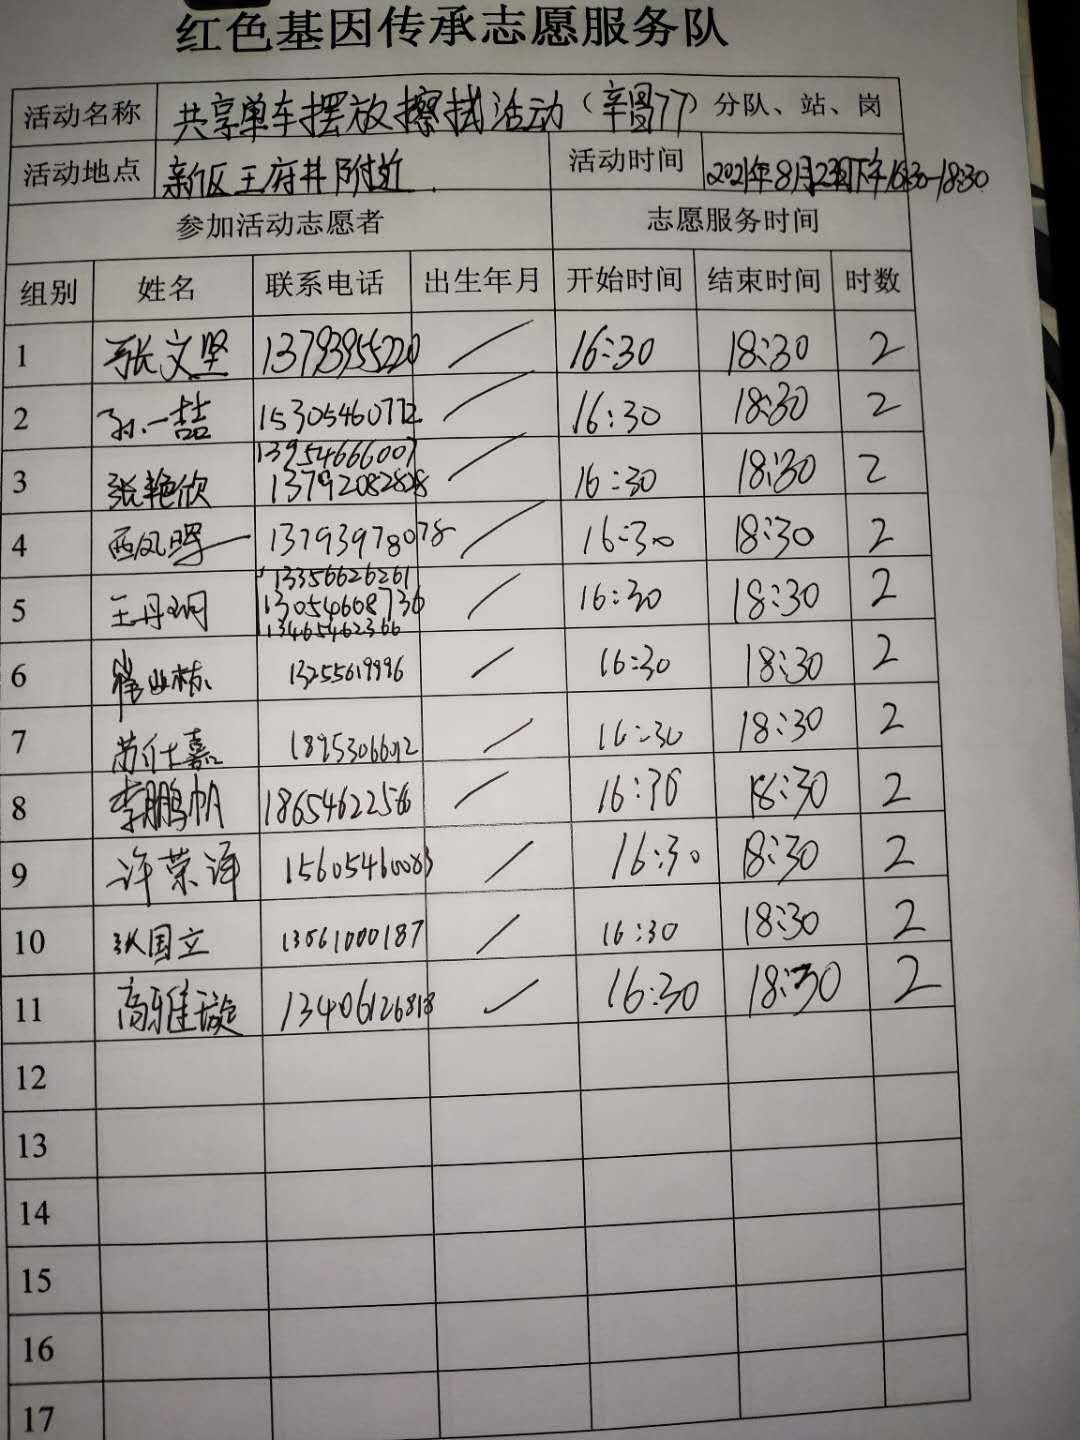 红色基因传承志愿服务队
活动名称 共享单车摆放擦拭活动（辛圆77）分队、站、岗
活动地点 新区王府井附近. 活动时间 2021年8月23日下午16:30-18:30
参加活动志愿者 志愿服务时间
组别 姓名 联系电话 出生年月 开始时间 结束时间 时数
1 张文坚 13793955220 / 16:30 18:30 2
2 孙一喆 15305460772 / 16:30 18:30 2
13954666007
3 张艳欣 13792082828 / 16:30 18:30 2
4 西凤晖 13793978078 / 16:30 18:30 2
13356626261
5 王丹珂 13054608736 / 16:30 18:30 2
13465462366
6 崔业栋 13255619996 / 16:30 18:30 2
7 苏仕嘉 / 16:30 18:30 2
8 李鹏帆 18654622566 / 16:30 18:30 2
9 许荣译 15605460083 / 16:30 18:30 2
10 张国立 13561000187 / 16:30 18:30 2
11 高雅璇 13406126818 / 16:30 18:30 2
12
13
14
15
16
17